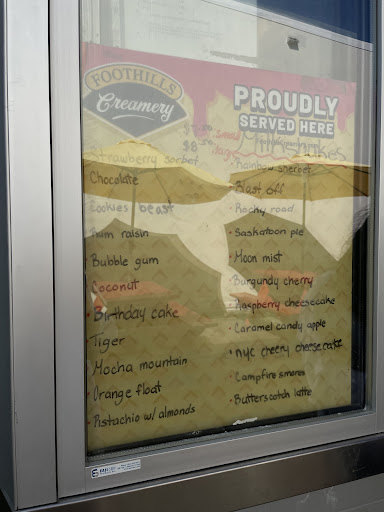 FOOTHILLS
Creamery
PROUDLY
SERVED HERE
Milkshakes
Strawberry sorbet
Chocolate
Cookies beast
Rum raisin
Bubble gum
Coconut
Birthday cake
Tiger
Mocha mountain
Orange float
Pistachio w/ almonds
Rainbow sherbet
Blast off
Rocky road
Saskatoon pie
Moon mist
Burgundy cherry
Raspberry cheesecake
Caramel candy apple
NYC cherry cheesecake
Campfire smores
Butterscotch latte